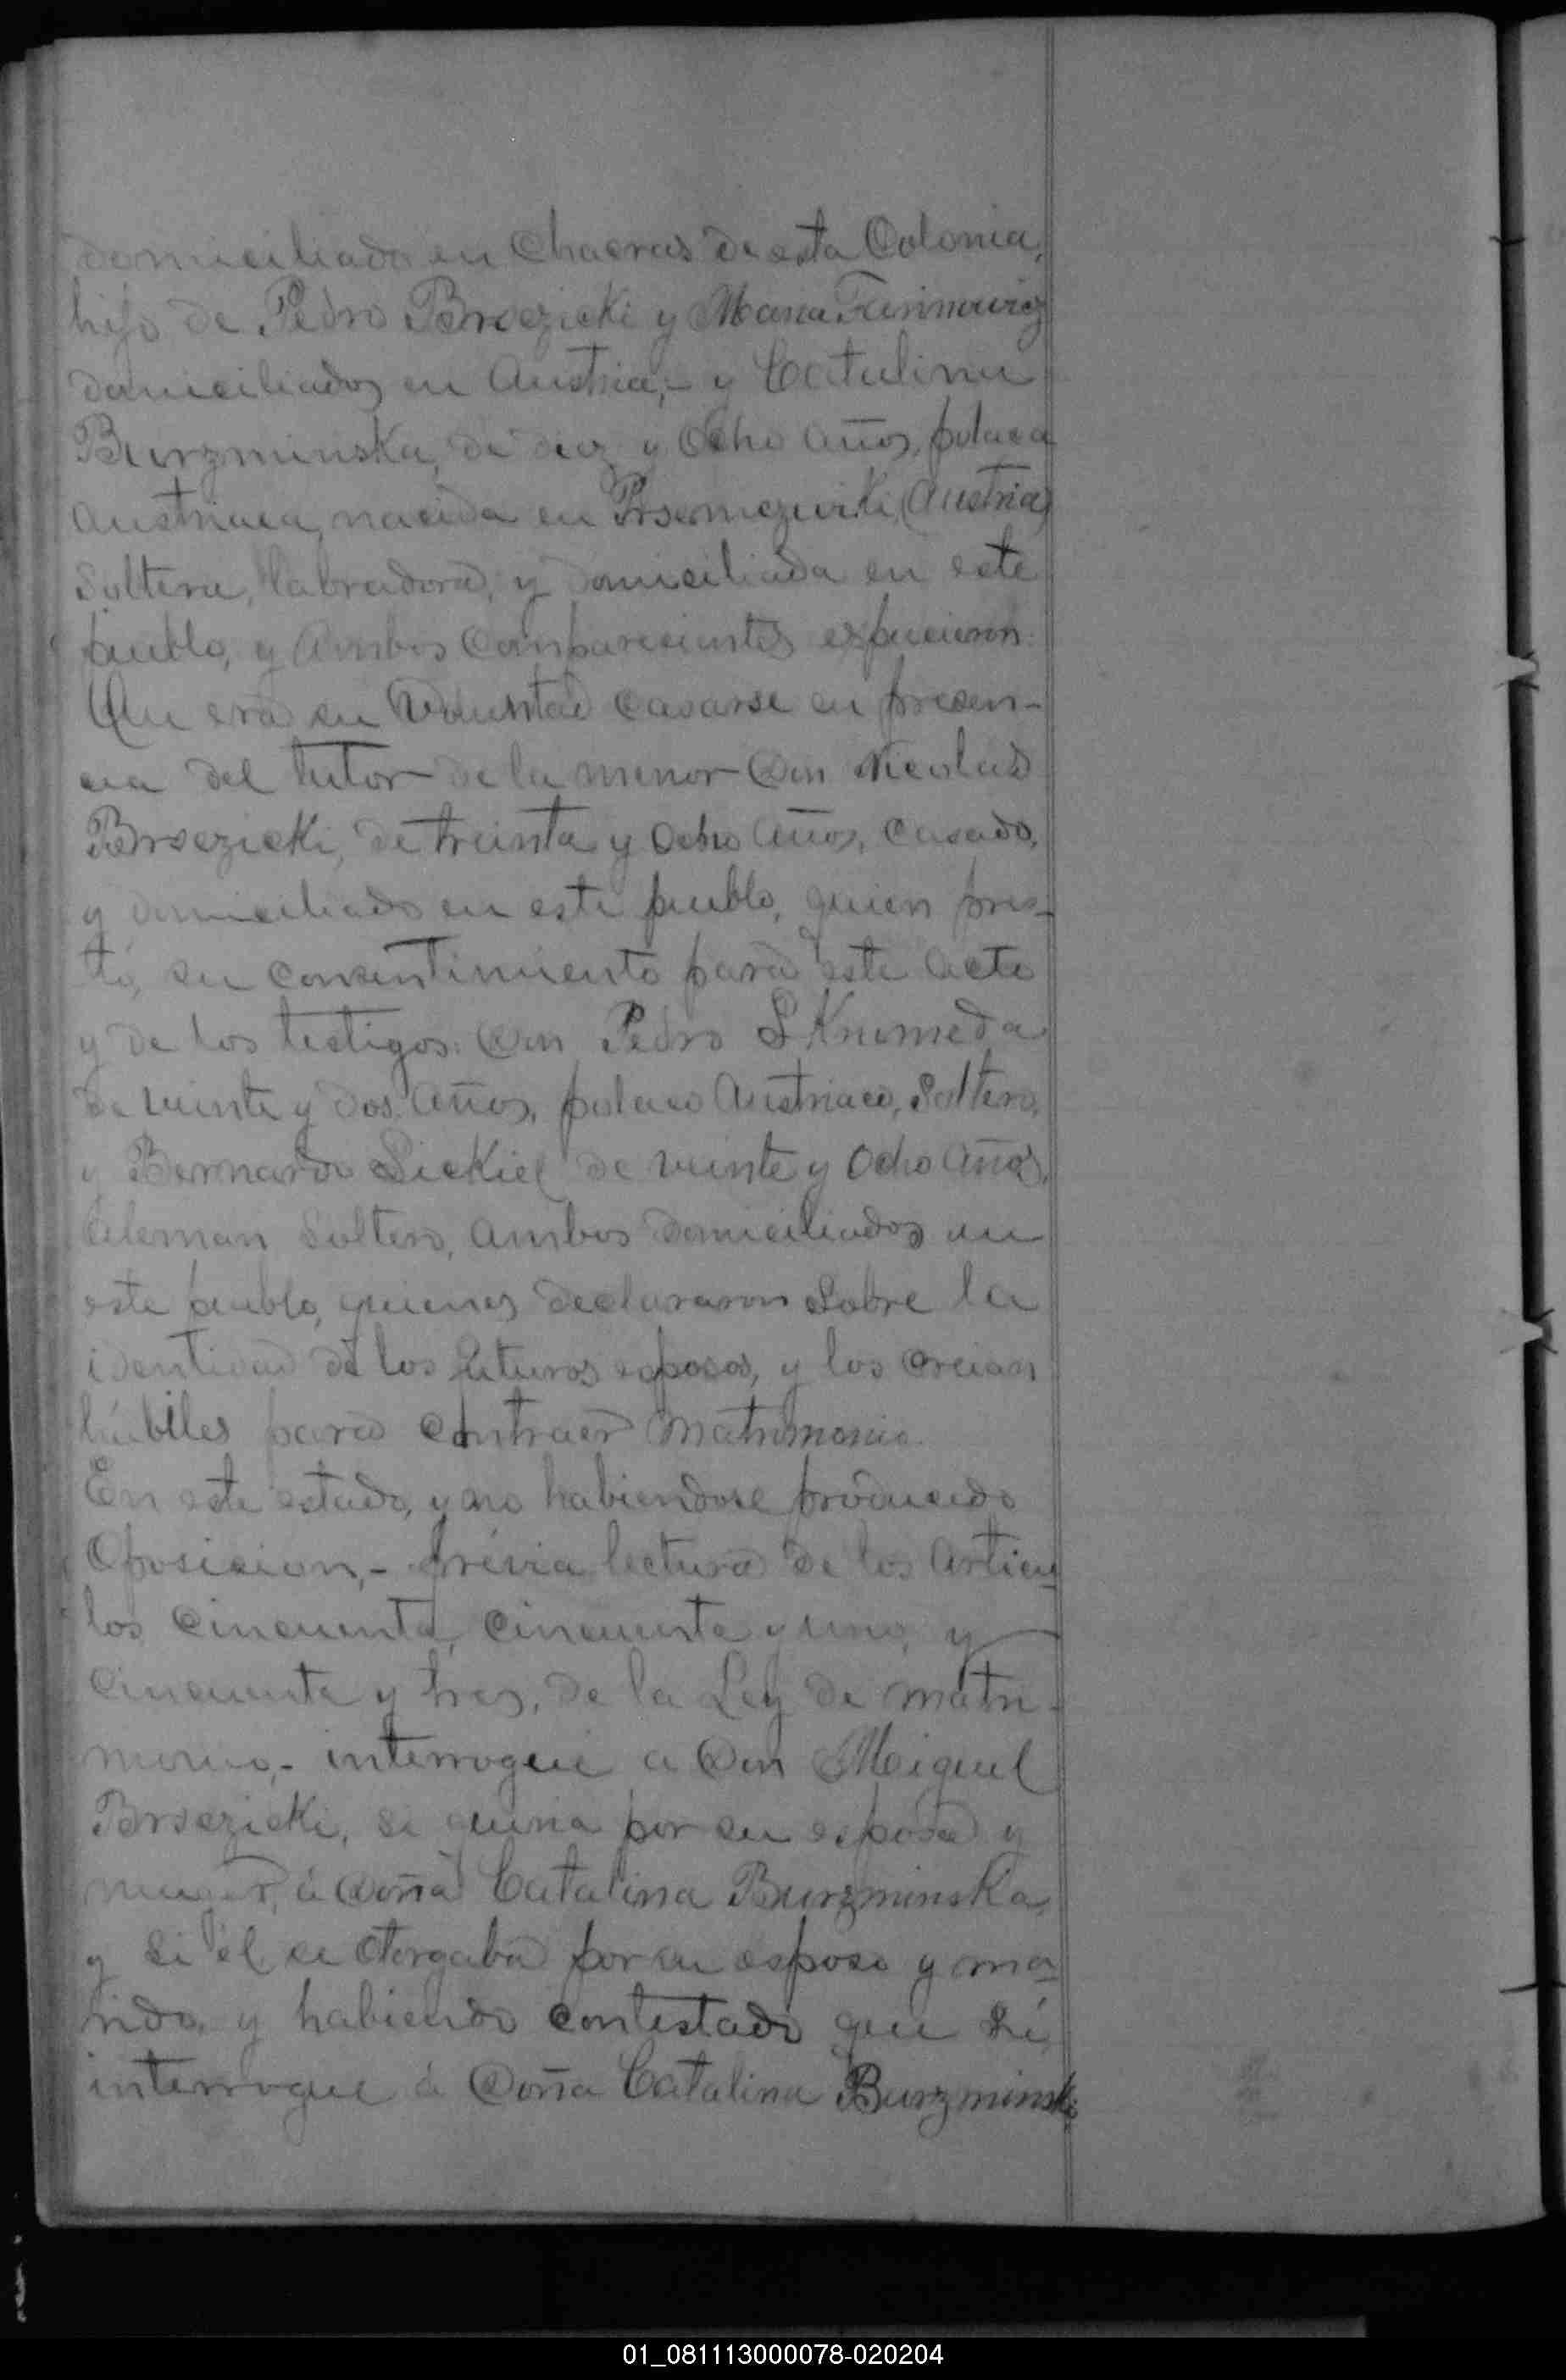 domiciliado en Chacras de esta Colonia,
hijo de Pedro Brsezicki y Maria Turinovicz
domiciliados en Austria,- y Catalina
Burzminska, de diez y Ocho Años, polaca
Austriaca, nacida en Prsemczuviki, (Austria)
Soltera, labradora, y domiciliada en este
pueblo, y Ambos Comparecientes espucieron:
Que era su Voluntad casarse en presen-
cia del tutor de la menor Don Nicolas
Brsezicki, de treinta y Ocho Años, Casado,
y domiciliado en este pueblo, quien pres-
tó, su consentimiento para este Acto
y de los testigos: Don Pedro S. Knemeda
de veinte y dos Años, polaco Austriaco, Soltero,
y Bernardo Siekiel de veinte y Ocho Años,
Aleman Soltero, Ambos domiciliados en
este pueblo, quienes declararon Sobre la
identidad de los futuros esposos, y los creian
hábiles para contraer Matrimonio.
En este estado, y no habiendose producido
Oposicion,- prévia lectura de los Articu-
los cincuenta, cincuenta y uno, y
cincuenta y tres, de la Ley de matri-
monio,- interrogué a Don Miguel
Brsezicki, si queria por su esposa y
muger, á Doña Catalina Burzminska,
y si él se Otorgaba por su esposo y ma-
rido, y habiendo contestado que Sí,
interrogué á Doña Catalina Burzminska
01_081113000078-020204